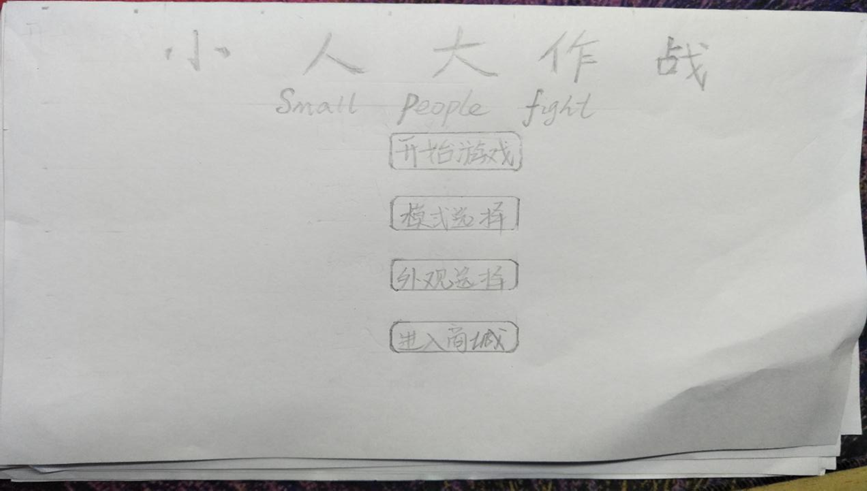 小人大作战
Small people fight
开始游戏
模式选择
外观选择
进入商城